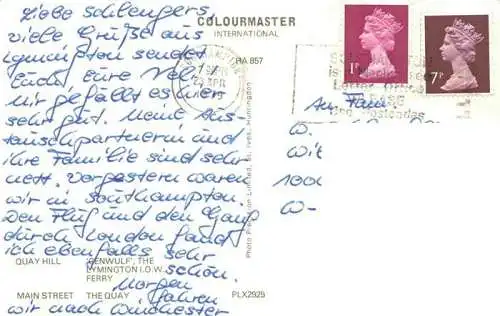 Liebe Schlengers,
viele Grüße aus
Lymington sendet
Euch Eure
Mir gefällt es hier
sehr gut. Meine Aus-
tauschpartnerin und
ihre Familie sind sehr
nett. Vorgestern waren
wir in Southampton.
Den Flug und den Gang
durch London fand
ich ebenfalls sehr
schön.
Morgen
fahren
wir nach Winchester
COLOURMASTER
INTERNATIONAL
PA 857
Photo Precision Limited, St. Ives, Huntingdon
QUAY HILL 'CENWULF', THE
LYMINGTON I.O.W.
FERRY
MAIN STREET THE QUAY PLX2925
1P
7P
An Fam.
W.
W-